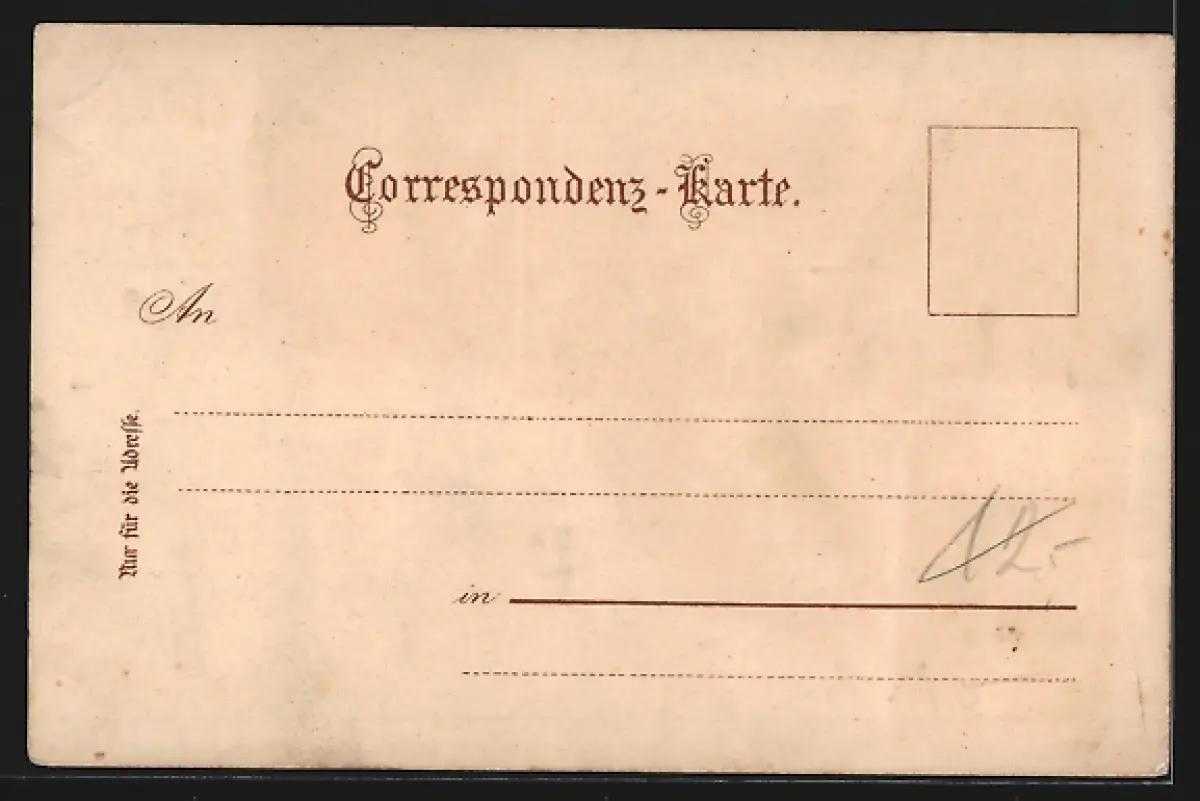 Correspondenz-Karte.
An
Nur für die Adresse.
12.-
in